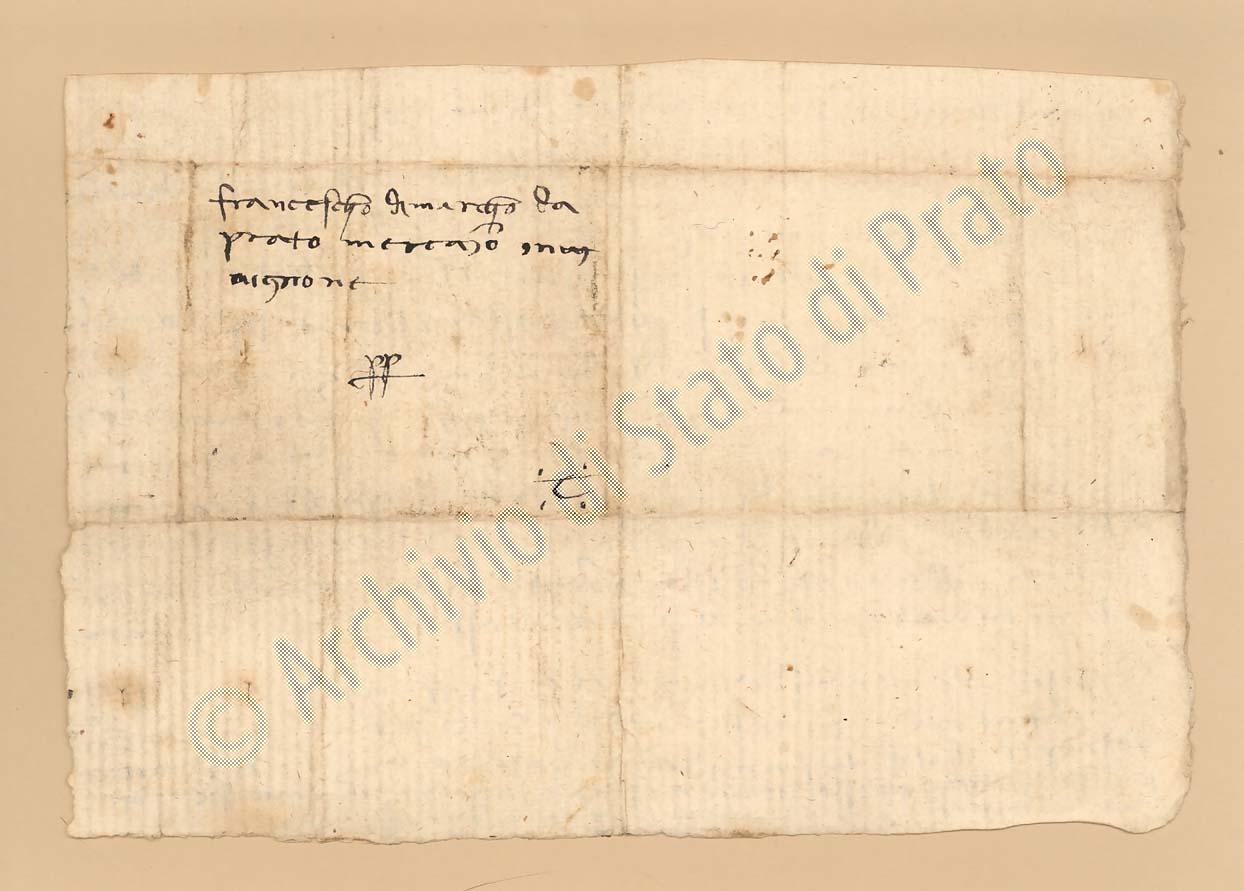 francescho dimarcho da
prato merca󠇯to inug
nignone
pp
C
© Archivio di Stato di Prato